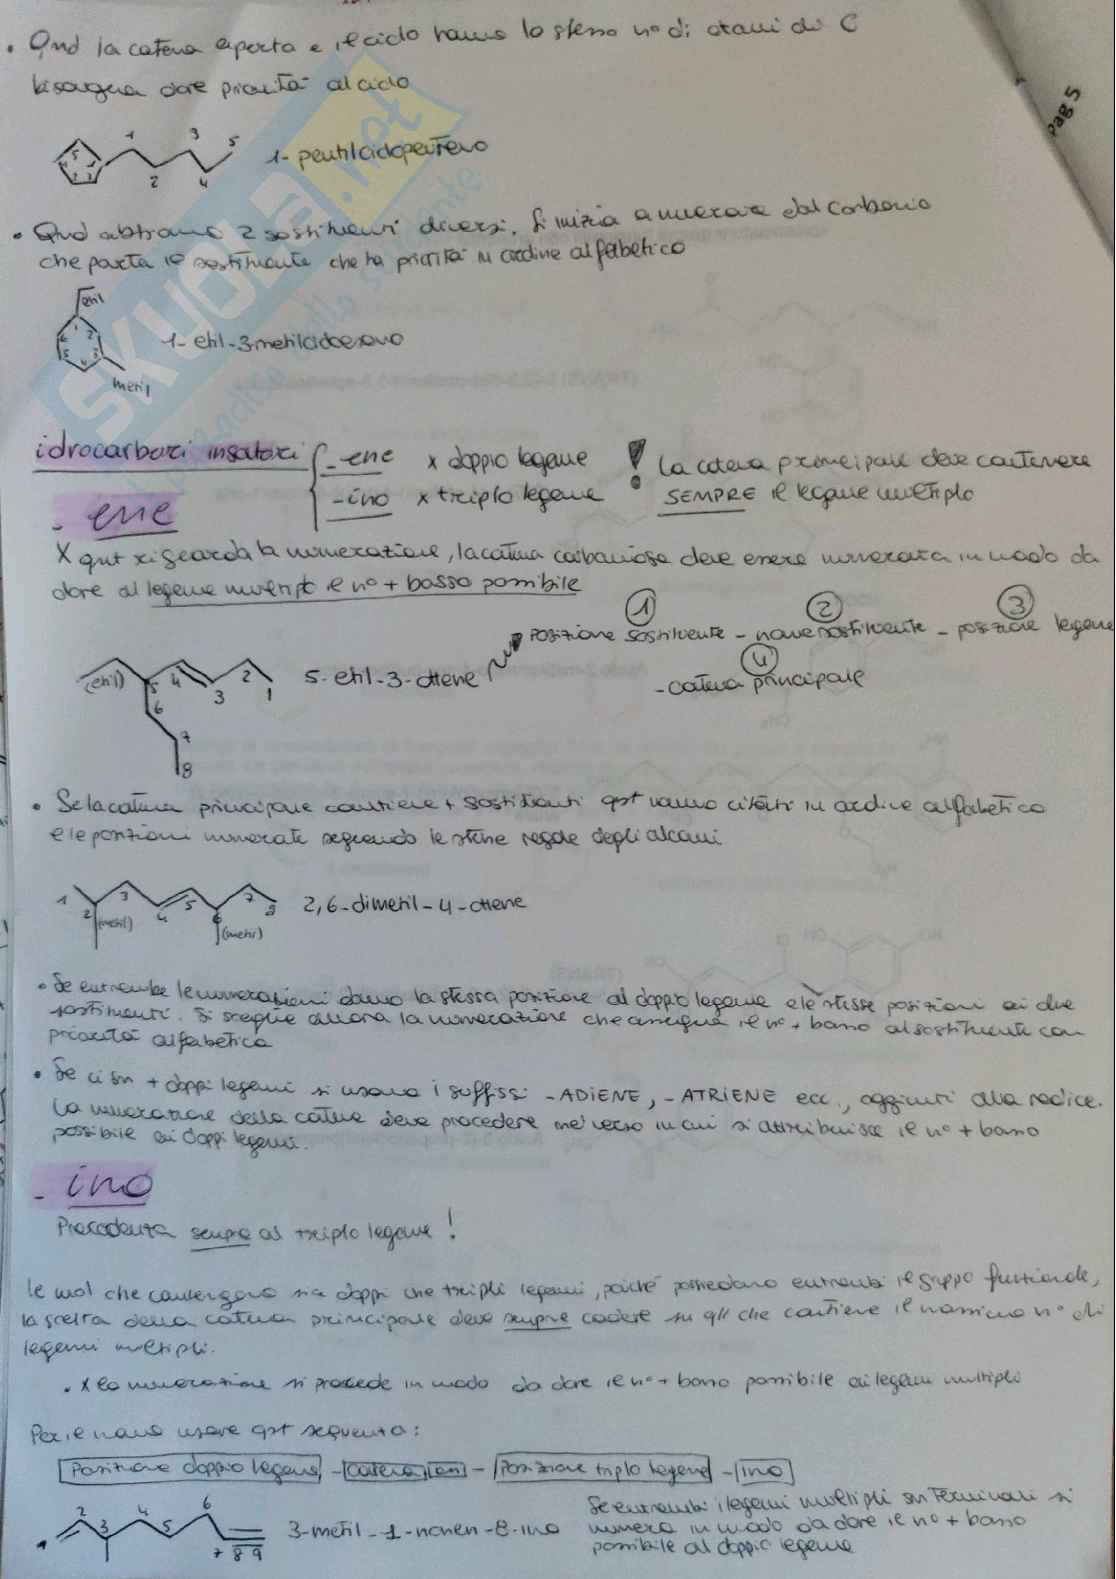 Pag 5
• Qnd la catena aperta e il ciclo hanno lo stesso n° di atomi di C
bisogna dare priorità al ciclo
1 2 3 4 5
1-pentilciclopentano
• Qnd abbiamo 2 sostituenti diversi, si inizia a numerare dal carbonio
che porta il sostituente che ha priorità in ordine alfabetico
etil
1 2 3 4 5 6
metil
1-etil-3metilcicloesano
idrocarburi insaturi
-ene x doppio legame
-ino x triplo legame
! La catena principale deve contenere
SEMPRE il legame multiplo
- ene
X qnt riguarda la numerazione, la catena carboniosa deve essere numerata in modo da
dare al legame multiplo il n° + basso possibile
① ② ③
Posizione sostituente - nome sostituente - posizione legame
④
- catena principale
(etil) 5 4 3 2 1
6
7
8
5-etil-3-ottene
• Se la catena principale contiene + sostituenti qst vanno citati in ordine alfabetico
e le posizioni numerate seguendo le stesse regole degli alcani
1 2 3 4 5 6 7 8
(metil) (metil)
2,6-dimetil-4-ottene
• Se entrambe le numerazioni danno la stessa posizione al doppio legame e le stesse posizioni ai due
sostituenti. Si sceglie allora la numerazione che assegna il n° + basso al sostituente con
priorità alfabetica
• Se ci sn + doppi legami si usano i suffissi -ADIENE, -ATRIENE ecc., aggiunti alla radice.
La numerazione della catena deve procedere nel verso in cui si attribuisce il n° + basso
possibile ai doppi legami.
- ino
Precedenza sempre al triplo legame!
Le mol che contengono sia doppi che tripli legami, poiché possiedono entrambi il gruppo funzionale,
la scelta della catena principale deve sempre cadere su qll che contiene il massimo n° di
legami multipli.
• X la numerazione si procede in modo da dare il n° + basso possibile ai legami multipli
Per il nome usare qst sequenza:
Posizione doppio legame - catena en - Posizione triplo legame - ino
1 2 3 4 5 6 7 8 9
3-metil-1-nonen-8-ino
Se entrambi i legami multipli sn Terminali si
numera in modo da dare il n° + basso
possibile al doppio legame
SKUOLA.net